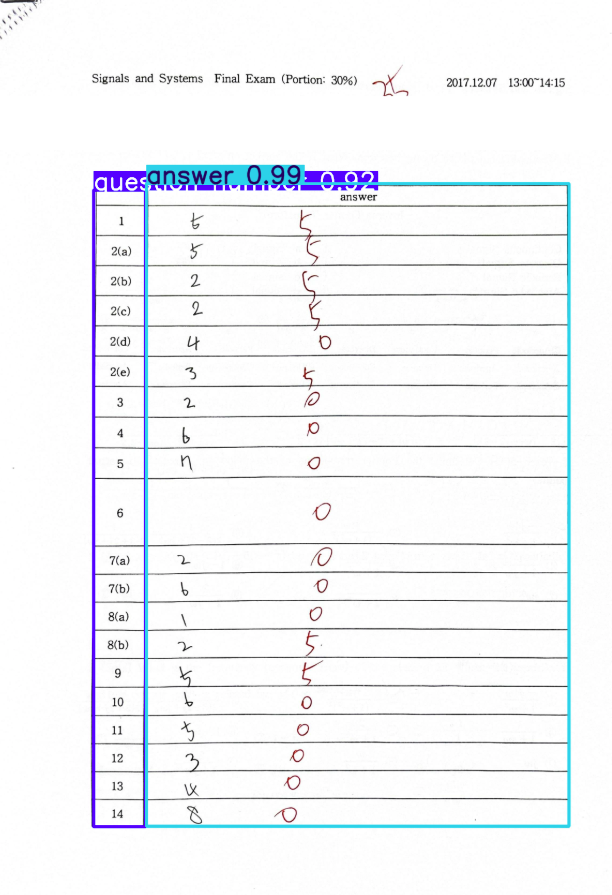 Signals and Systems Final Exam (Portion: 30%) 2017.12.07 13:00~14:15
question number 0.92
answer 0.99
answer
1 5 5
2(a) 5 5
2(b) 2 5
2(c) 2 5
2(d) 4 0
2(e) 3 5
3 2 0
4 6 0
5 n 0
6 0
7(a) 2 0
7(b) 6 0
8(a) 1 0
8(b) 2 5
9 5 5
10 6 0
11 5 0
12 3 0
13 4 0
14 8 0